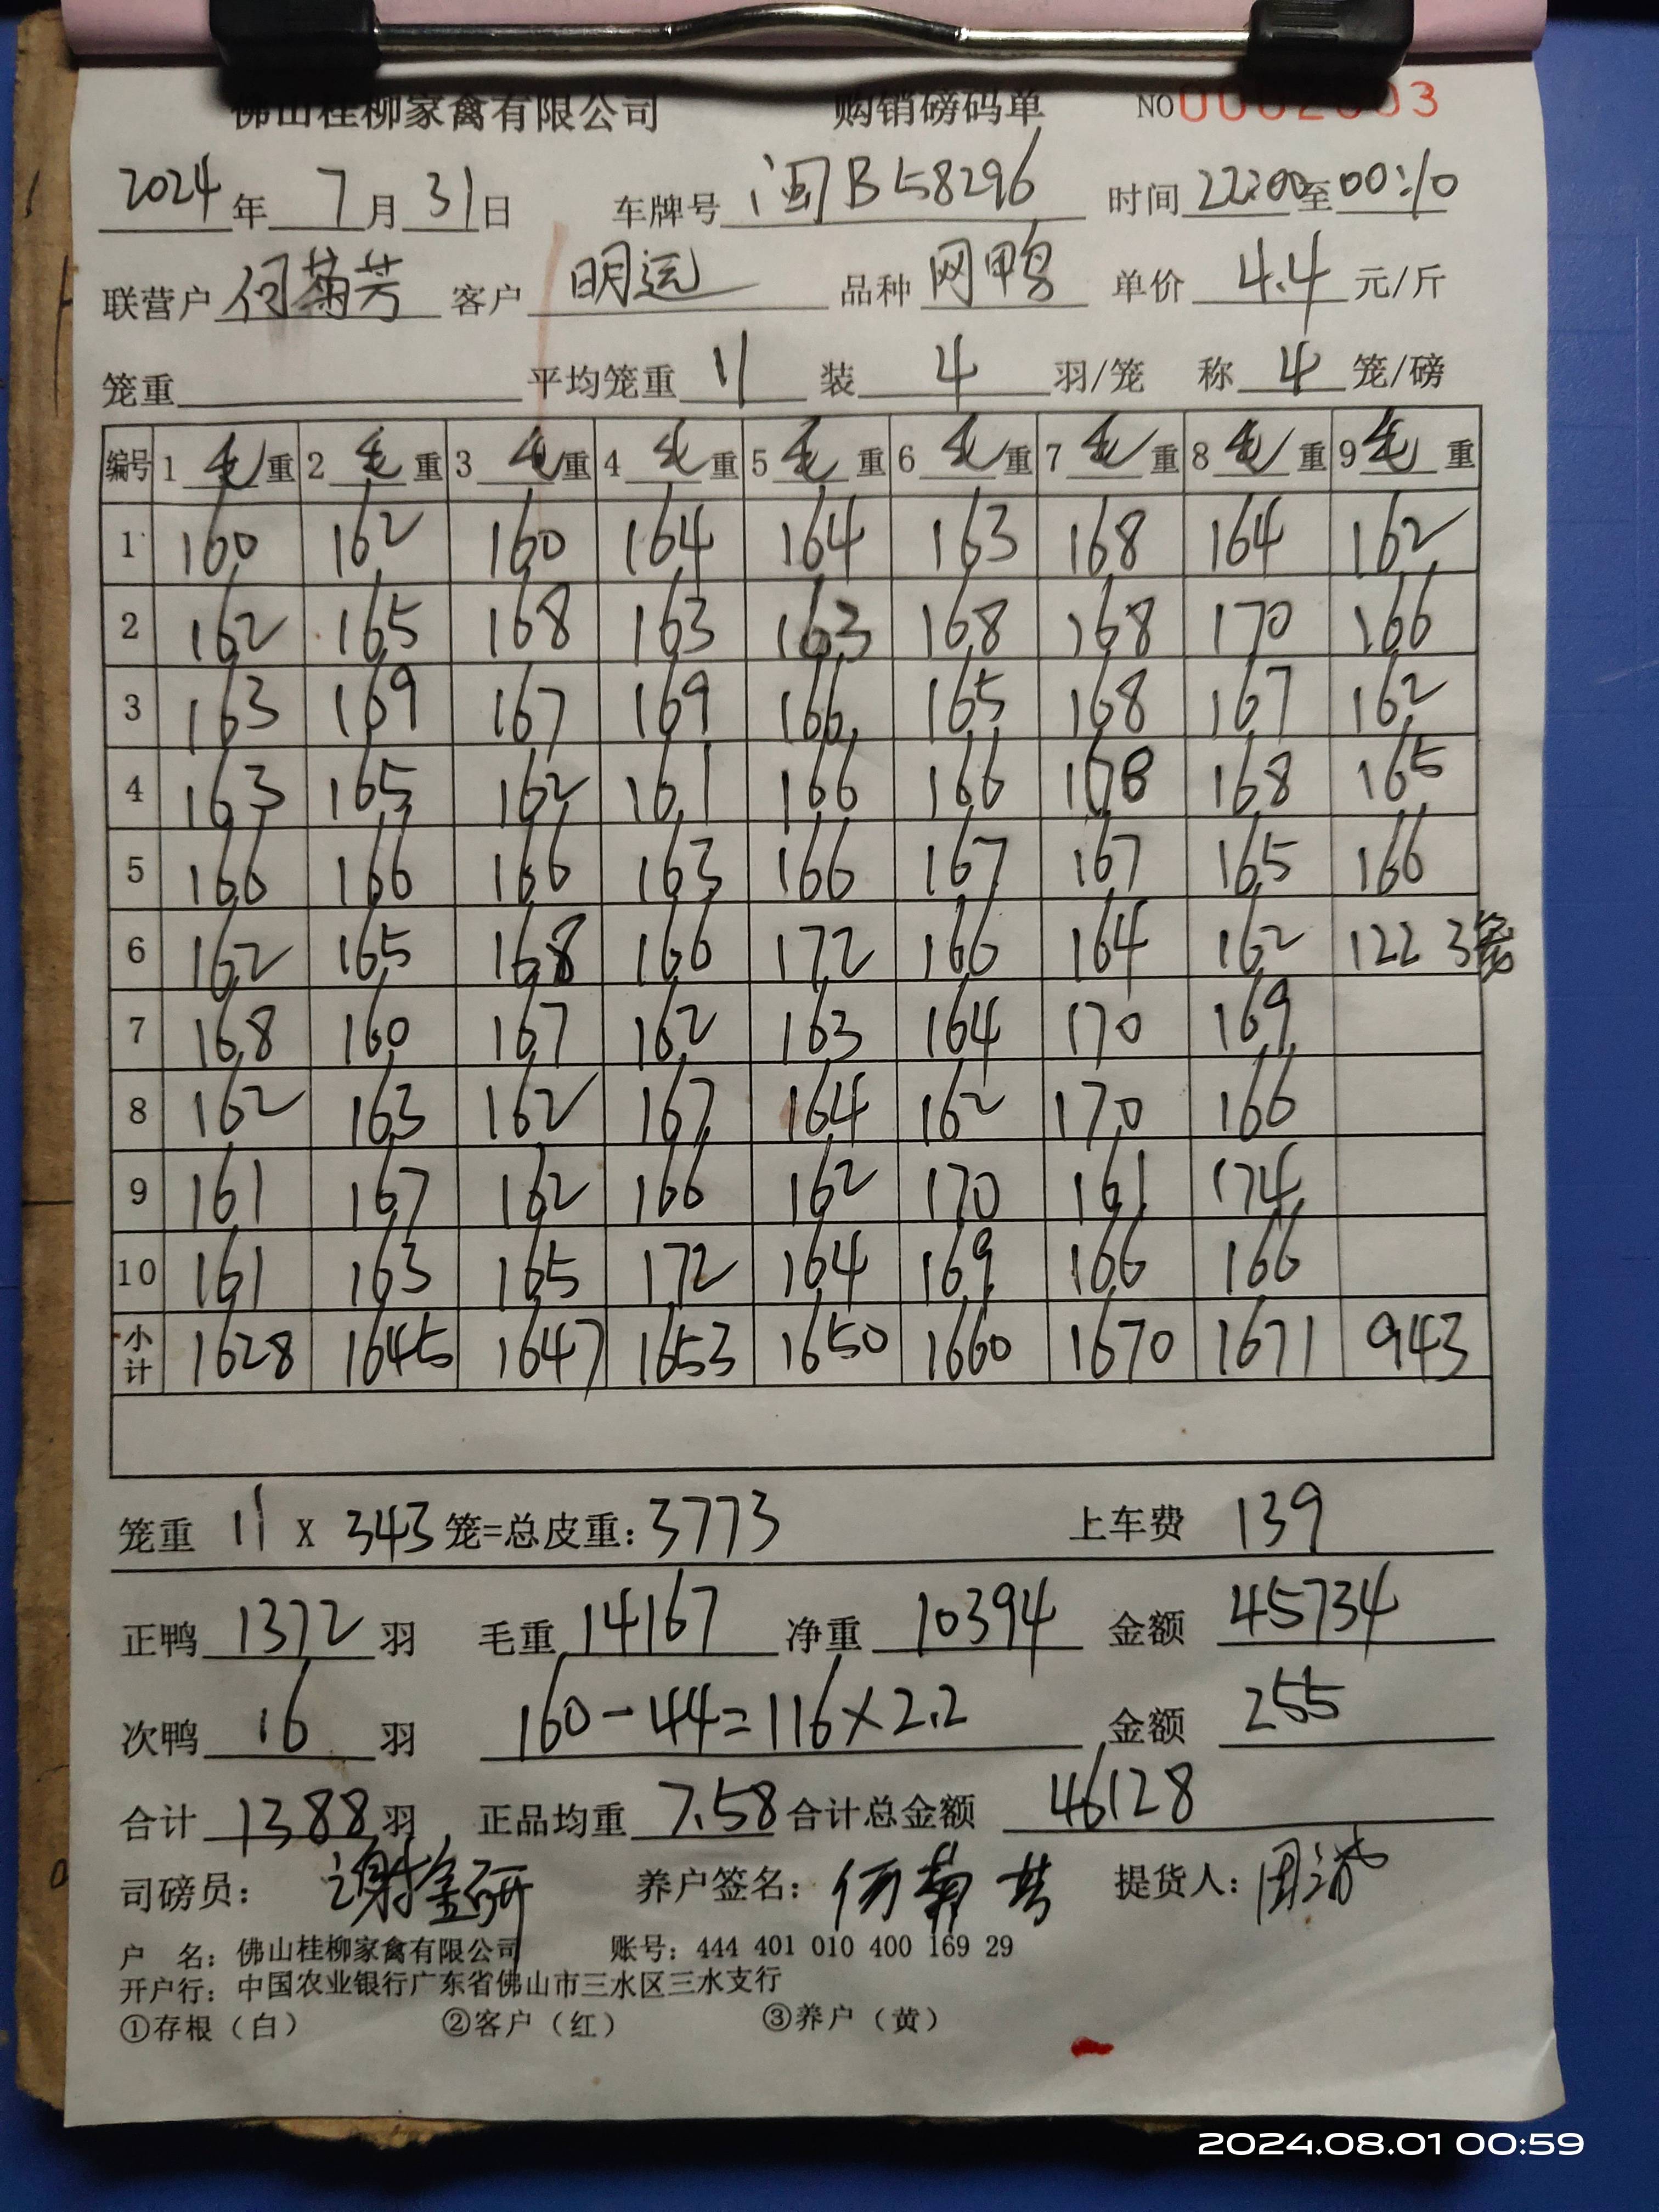 佛山桂柳家禽有限公司 购销磅码单 NO
2024年7月31日 车牌号 闽B58296 时间 22:00至00:10
联营户 何菊芳 客户 明远 品种 网鸭 单价 4.4 元/斤
笼重 平均笼重 11 装 4 羽/笼 称 4 笼/磅
编号 1 毛重 2 毛重 3 毛重 4 毛重 5 毛重 6 毛重 7 毛重 8 毛重 9 毛重
1 160 162 160 164 164 163 168 164 162
2 162 165 168 163 163 168 168 170 166
3 163 169 167 169 166 165 168 167 162
4 163 165 162 161 166 166 168 168 165
5 166 166 166 163 166 167 167 165 166
6 162 165 168 166 172 166 164 162 122 3笼
7 168 160 167 162 163 164 170 169
8 162 163 162 167 164 162 170 166
9 161 167 162 166 162 170 161 174
10 161 163 165 172 164 169 166 166
小计 1628 1645 1647 1653 1650 1660 1670 1671 943
笼重 11 X 343 笼=总皮重: 3773 上车费 139
正鸭 1372 羽 毛重 14167 净重 10394 金额 45734
次鸭 16 羽 160-44=116×2.2 金额 255
合计 1388 羽 正品均重 7.58 合计总金额 46128
司磅员: 谢金研 养户签名: 何菊芳 提货人:
户 名: 佛山桂柳家禽有限公司 账号: 444 401 010 400 169 29
开户行: 中国农业银行广东省佛山市三水区三水支行
①存根(白) ②客户(红) ③养户(黄)
2024.08.01 00:59